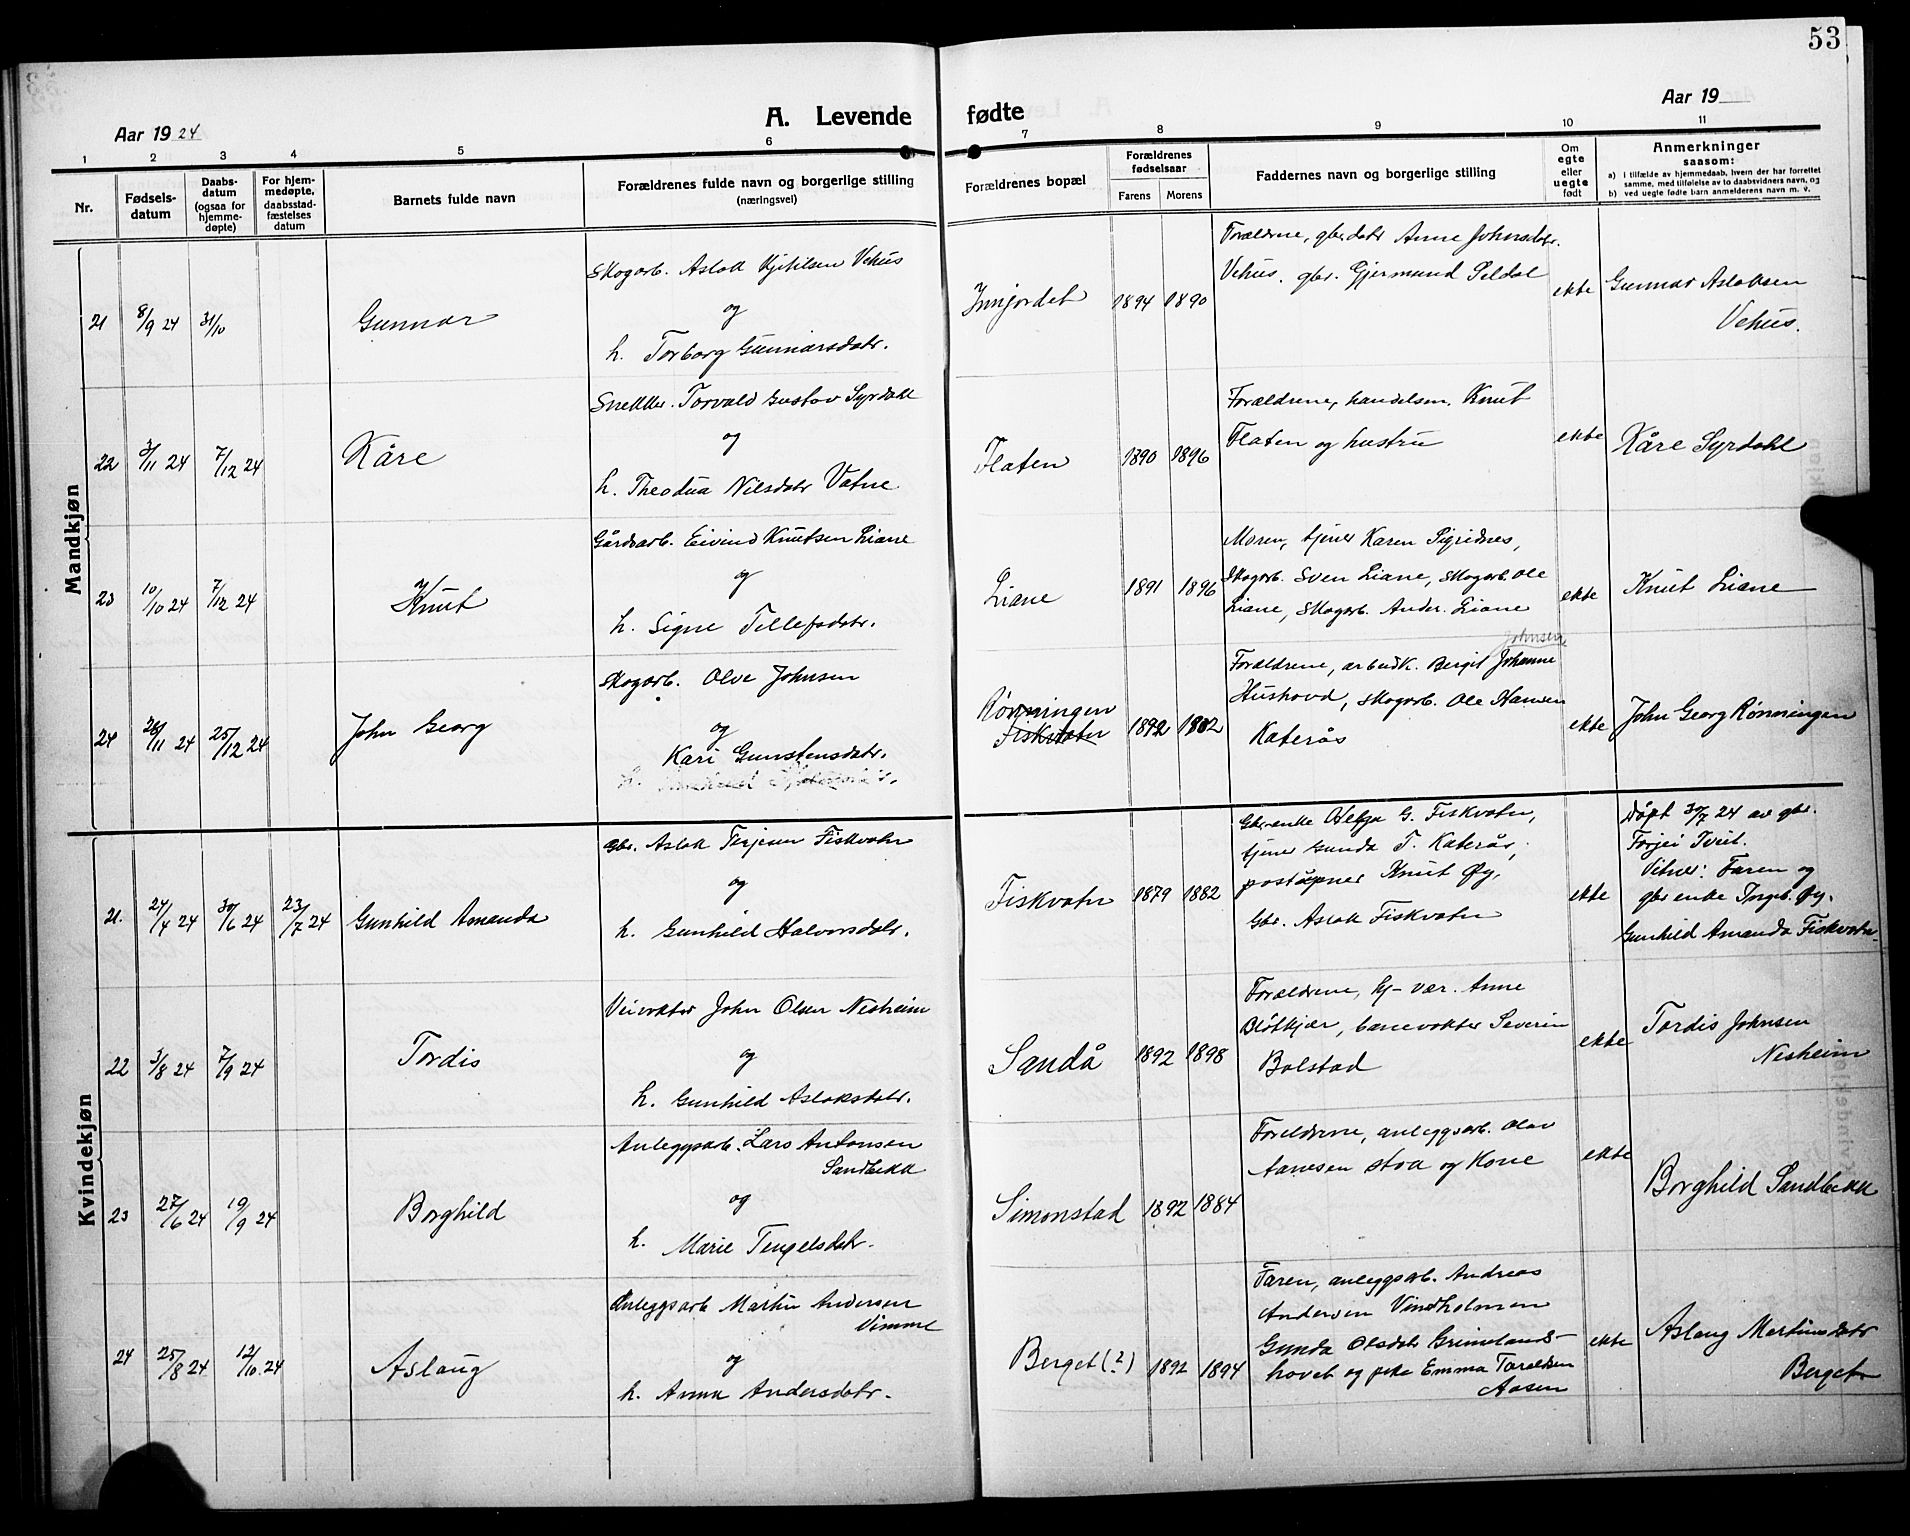 53
A. Levende fødte
Aar 1924
Aar 19
1 2 3 4 5 6 7 8 9 10 11
Nr.
Fødsels-
datum
Daabs-
datum
(ogsaa for
hjemme-
døpte)
For hjem-
medøpte,
daabsstad-
fæstelses
datum
Barnets fulde navn
Forældrenes fulde navn og borgerlige stilling
(næringsvei)
Forældrenes bopæl
Forældrenes
fødselsaar
Farens Morens
Faddernes navn og borgerlige stilling
Om
egte
eller
uegte
født
Anmerkninger
saasom:
a) i tilfælde av hjemmedaab, hvem der har forrettet
samme, med tilføielse av to daabsvidners navn, og
b) ved uegte fødte barn anmelderens navn m. v.
Mandkjøn
21 8/9 24 31/10 Gunnar
Skogarb. Aslak Kjetilsen Vehus
og
h. Torborg Gunnarsdatr.
Innjordet 1894 1890
Forældrene, gbr.datr Anne Johnsdatr.
Vehus. gbr. Gjermund Seldal
ekte
Gunnar Aslaksen
Vehus.
22 3/11 24 7/12 24 Kåre
Snekker. Torvald Gustav Syrdahl
og
h. Theodua Nilsdatr Vatne.
Flaten 1890 1896
Forældrene, handelsm. Knut
Flaten og hustru
ekte
Kåre Syrdahl
23 10/10 24 7/12 24 Knut
Gårdsarb. Eivind Knutsen Liane
og
h. Signe Tellefsdatr.
Liane 1891 1896
Moren, tjener Karen Sigridnes,
Skogarb. Sven Liane, skogarb. Ole
Liane, skogarb. Ander. Liane
ekte
Knut Liane
24 26/11 24 25/12 24 John Georg
Skogarb. Olve Johnsen
og
Kari Gunstensdatr.
h.
Rønningen
Fiskvatn
1892 1882
Johnsen
Forældrene, arbeidk. Bergit Johanne
Hushovd, skogarb. Ole Hansen
Katerås
ekte
John Georg Rønningen
Kvindekjøn
21. 24/4 24 30/6 24 23/7 24 Gunhild Amanda
Gbr. Aslak Terjesen Fiskvatn
og
h. Gunhild Halvorsdatr.
Fiskvatn 1879 1882
Gbr.enke Helga G. Fiskvatn,
tjener Gunda T. Katerås,
poståpner Knut Øy,
Gbr. Aslak Fiskvatn
ekte
Døpt 30/7 24 av gbr.
Torjei Tveit.
Vitner: Faren og
gbr enke Ingeb. Øy.
Gunhild Amanda Fiskvatn.
22 3/8 24 7/9 24 Tordis
Veivokter John Olsen Nesheim
og
h. Gunhild Aslaksdatr.
Sandå 1892 1898
Forældrene, hj-vær. Anne
Bløtkjær, banevokter Severin
Bolstad
ekte
Tordis Johnsen
Nesheim
23 27/6 24 19/9 24 Borghild
Anleggsarb. Lars Antonsen
Sandbekk
og
h. Marie Tengelsdatr.
Simonstad 1892 1884
Foreldrene, anleggsarb. Olav
Aanesen Stoa og Kone
ekte
Borghild Sandbekk
24 25/8 24 12/10. 24 Aslaug
Anleggsarb Martin Andersen
Vimme
og
h. Anna Andersdatr.
Berget (?) 1892 1894
Faren, anleggsarb. Andreas
Andersen Vindholmen
Gunda Olsdatr Grimelands-
hovet og pike Emma Taraldsen
Aasen
ekte
Aslaug Martinsdatr
Berget